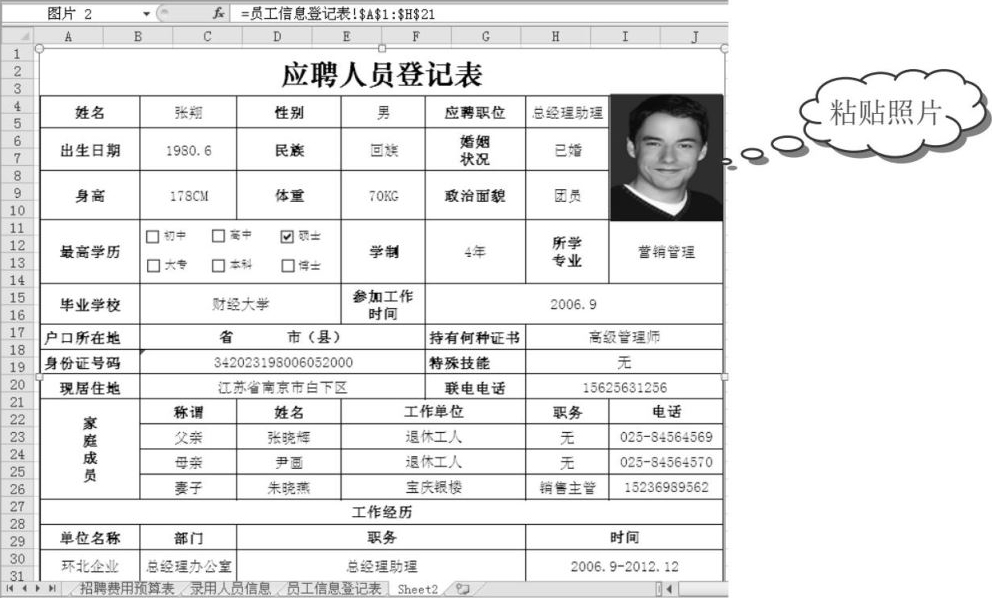 图片 2 fx =员工信息登记表!$A$1:$H$21
A B C D E F G H I J
1
2
3
4
5
6
7
8
9
10
11
12
13
14
15
16
17
18
19
20
21
22
23
24
25
26
27
28
29
30
31
应聘人员登记表
姓名 张翔 性别 男 应聘职位 总经理助理
出生日期 1980.6 民族 回族 婚姻状况 已婚
身高 178CM 体重 70KG 政治面貌 团员
最高学历 初中 高中 硕士 学制 4年 所学专业 营销管理
大专 本科 博士
毕业学校 财经大学 参加工作时间 2006.9
户口所在地 省 市（县） 持有何种证书 高级管理师
身份证号码 342023198006052000 特殊技能 无
现居住地 江苏省南京市白下区 联电电话 15625631256
家庭成员 称谓 姓名 工作单位 职务 电话
父亲 张晓辉 退休工人 无 025-84564569
母亲 尹画 退休工人 无 025-84564570
妻子 朱晓燕 宝庆银楼 销售主管 15236989562
工作经历
单位名称 部门 职务 时间
环北企业 总经理办公室 总经理助理 2006.9-2012.12
招聘费用预算表 录用人员信息 员工信息登记表 Sheet2
粘贴照片